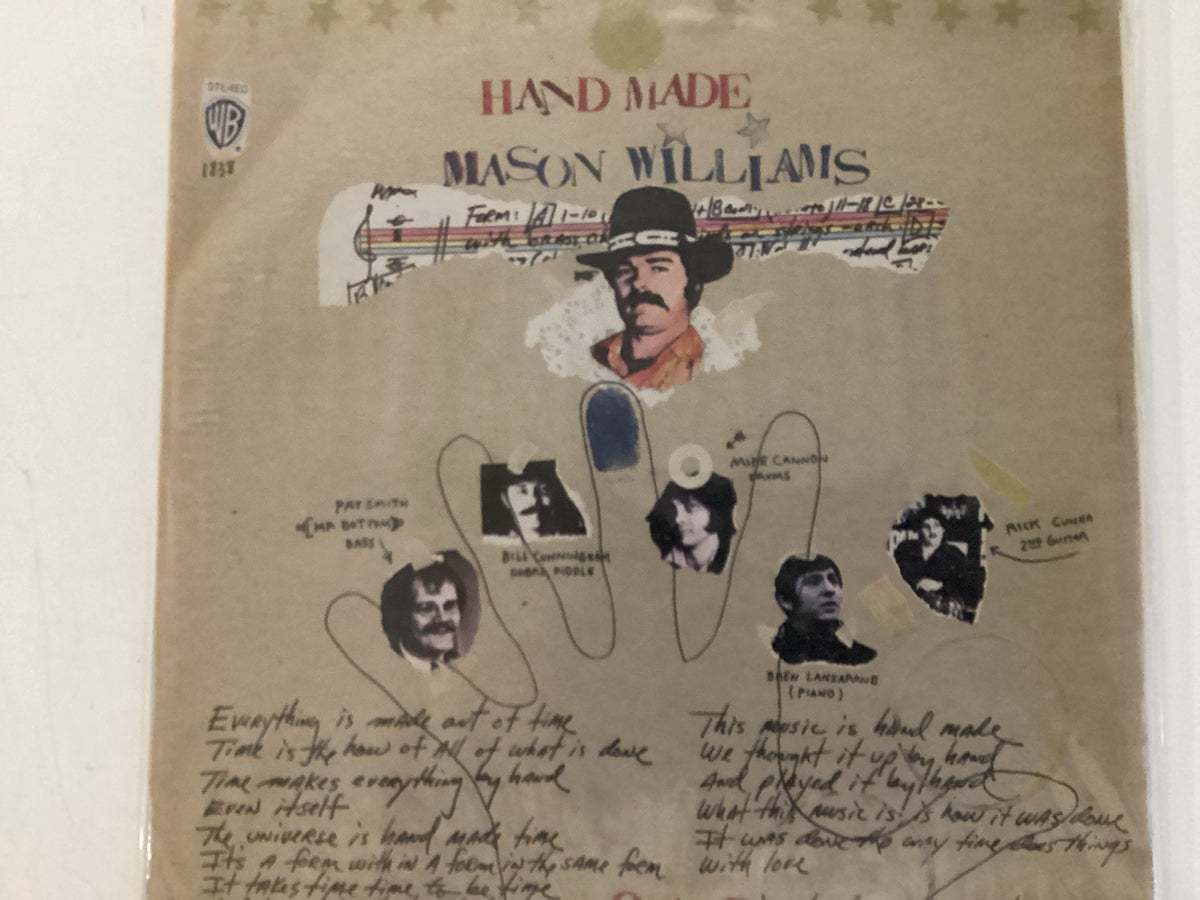 HAND MADE
STEREO
WB
1838
MASON WILLIAMS
Form: A 1-10
11-18 C
with BRASS
strings
MIKE CANNON
DRUMS
PAT SMITH
(MR BOTTOM)
BASS
BILL CUNNINGHAM
DOBRO FIDDLE
RICK CUNHA
2ND GUITAR
BREN LANZARONE
(PIANO)
Everything is made out of time
Time is the how of All of what is done
Time makes everything by hand
Even itself
The universe is hand made time
Its A form with in A form in the same form
It takes time time, to be time
This music is hand made
We thought it up by hand
And played it by hand
What this music is: is how it was done
It was done the way time does things
With love